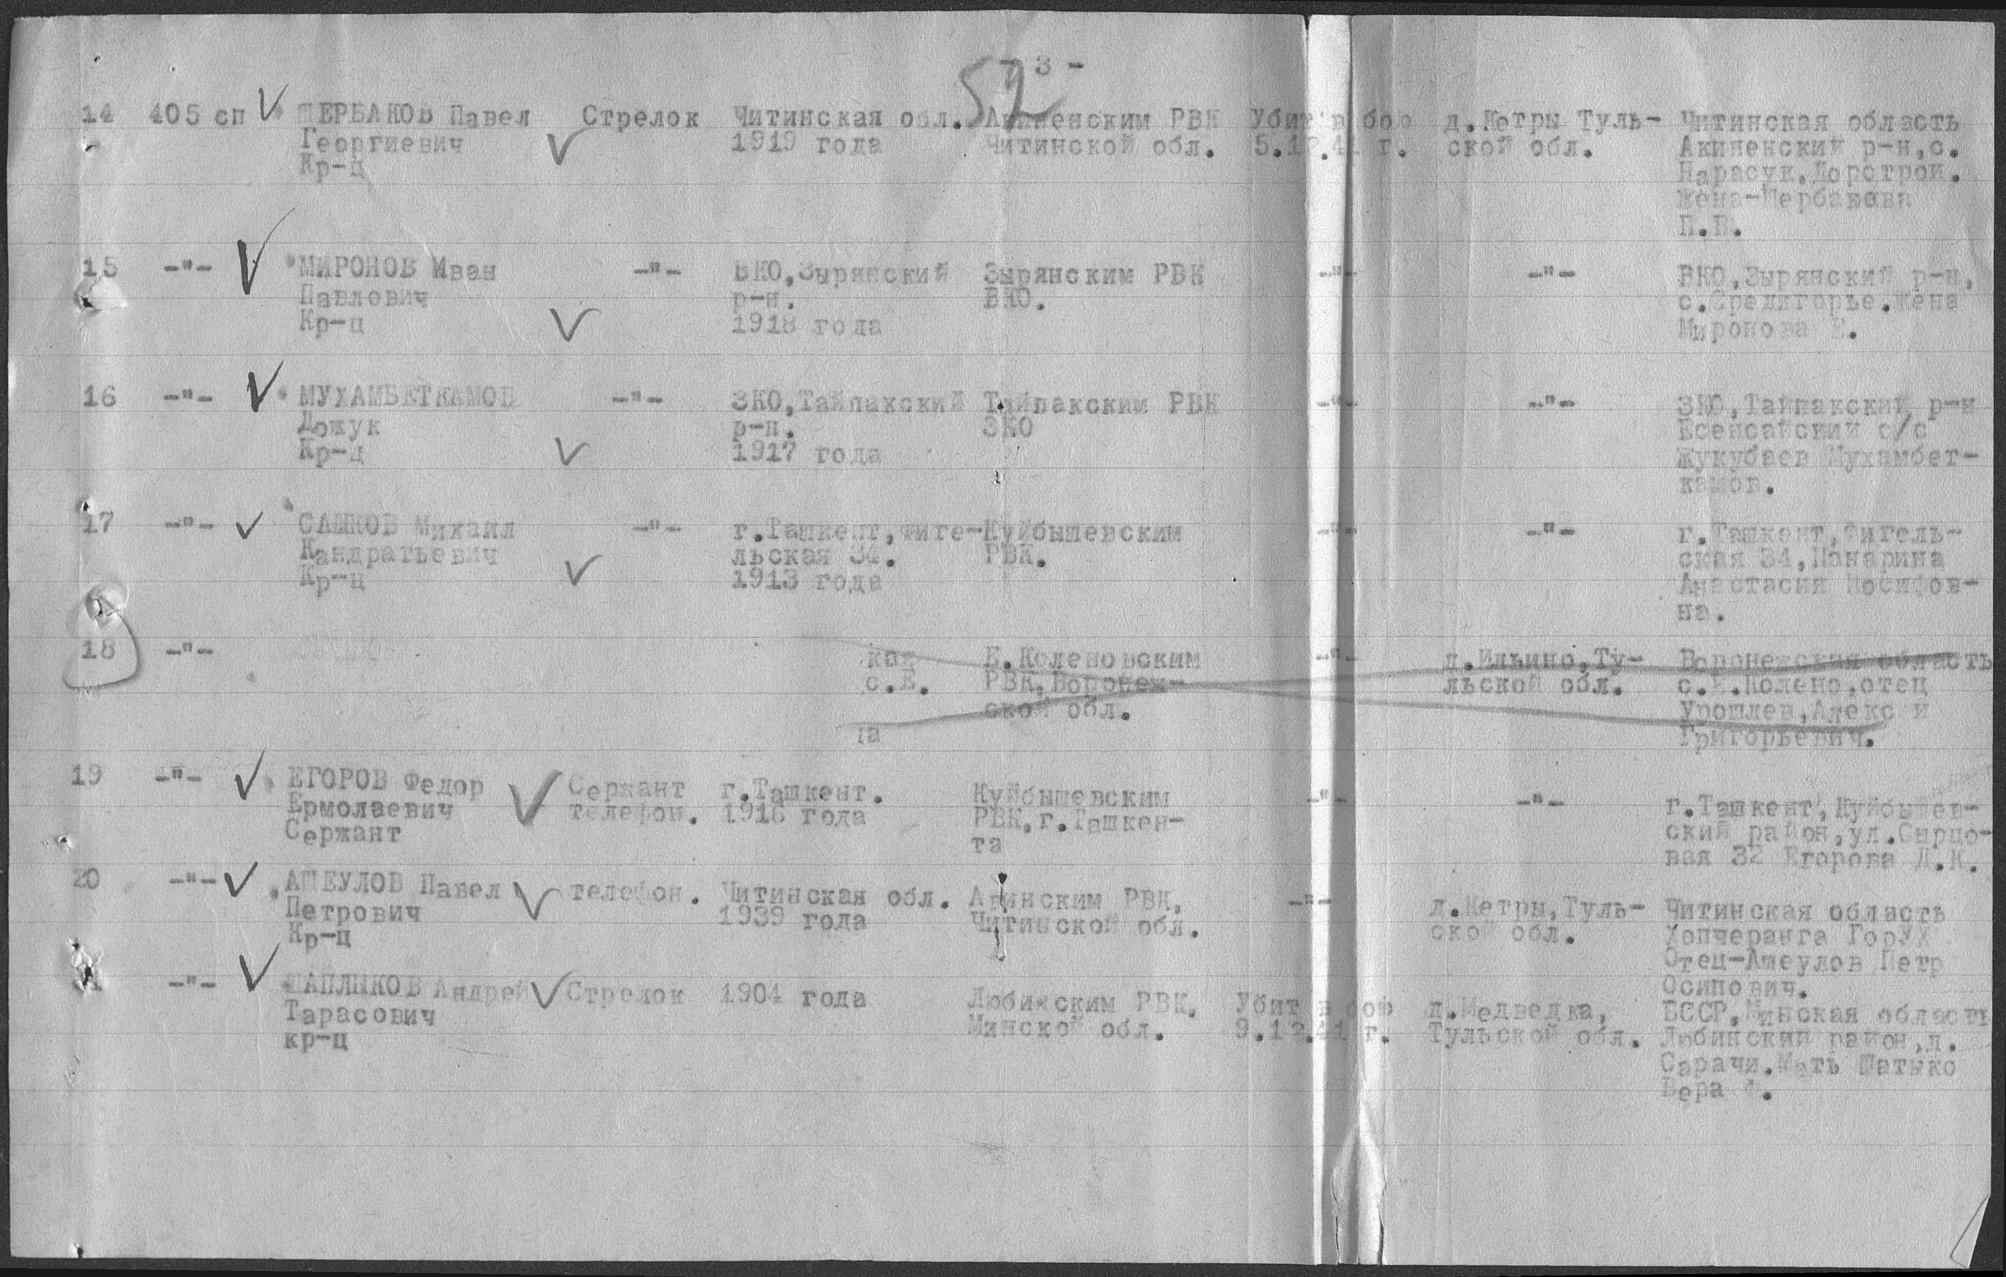 3 -
52
14 405 сп ЩЕРБАКОВ Павел Стрелок Читинская обл. Акшенским РВК Убит в бою д.Кетры Туль- Читинская область
Георгиевич 1919 года Читинской обл. 5.12.41 г. ской обл. Акшенский р-н,с.
Кр-ц Нарасук,Дорстрой.
жена-Щербакова
П.В.
15 -"- МИРОНОВ Иван -"- ВКО,Зырянский Зырянским РВК -"- -"- ВКО,Зырянский р-н,
Павлович р-н. ВКО. с.Средигорье.жена
Кр-ц 1918 года Миронова
16 -"- МУХАМБЕТКАМОВ -"- ЗКО,Тайпакский Тайпакским РВК -"- -"- ЗКО,Тайпакский р-н
Дожук р-н. ЗКО Есенсайский с/с
Кр-ц 1917 года Жукубаев Мухамбет-
камов.
17 -"- САШКОВ Михаил -"- г.Ташкент,Фиге- Куйбышевским -"- -"- г.Ташкент,Фигель-
Кандратьевич льская 34. РВК. ская 34,Панарина
Кр-ц 1913 года Анастасия Иосифов-
на.
18 -"- кая Е.Коленовским -"- д.Ильино,Ту- Воронежская область
с.Е. РВК,Воронеж- льской обл. с.Е.Колено,отец
ской обл. Урошлев,Алекс и
га Григорьевич.
19 -"- ЕГОРОВ Федор Сержант г.Ташкент. Куйбышевским -"- -"- г.Ташкент,Куйбышев-
Ермолаевич телефон. 1916 года РВК,г.Ташкен- ский район,ул.Сирцо-
Сержант та вая 32 Егорова Л.К.
20 -"- АШЕУЛОВ Павел телефон. Читинская обл. Акинским РВК, -"- д.Кетры,Туль- Читинская область
Петрович 1939 года Читинской обл. ской обл. Хопчеранга ГорУХ
Кр-ц Отец-Ашеулов Петр
Осипович.
-"- ШАПЛЫКОВ Андрей Стрелок 1904 года Любинским РВК, Убит в бою д.Медведка, БССР,Минская область
Тарасович Минской обл. 9.12.41 г. Тульской обл. Любинский район,д.
кр-ц Сарачи.Мать Шатыко
Вера